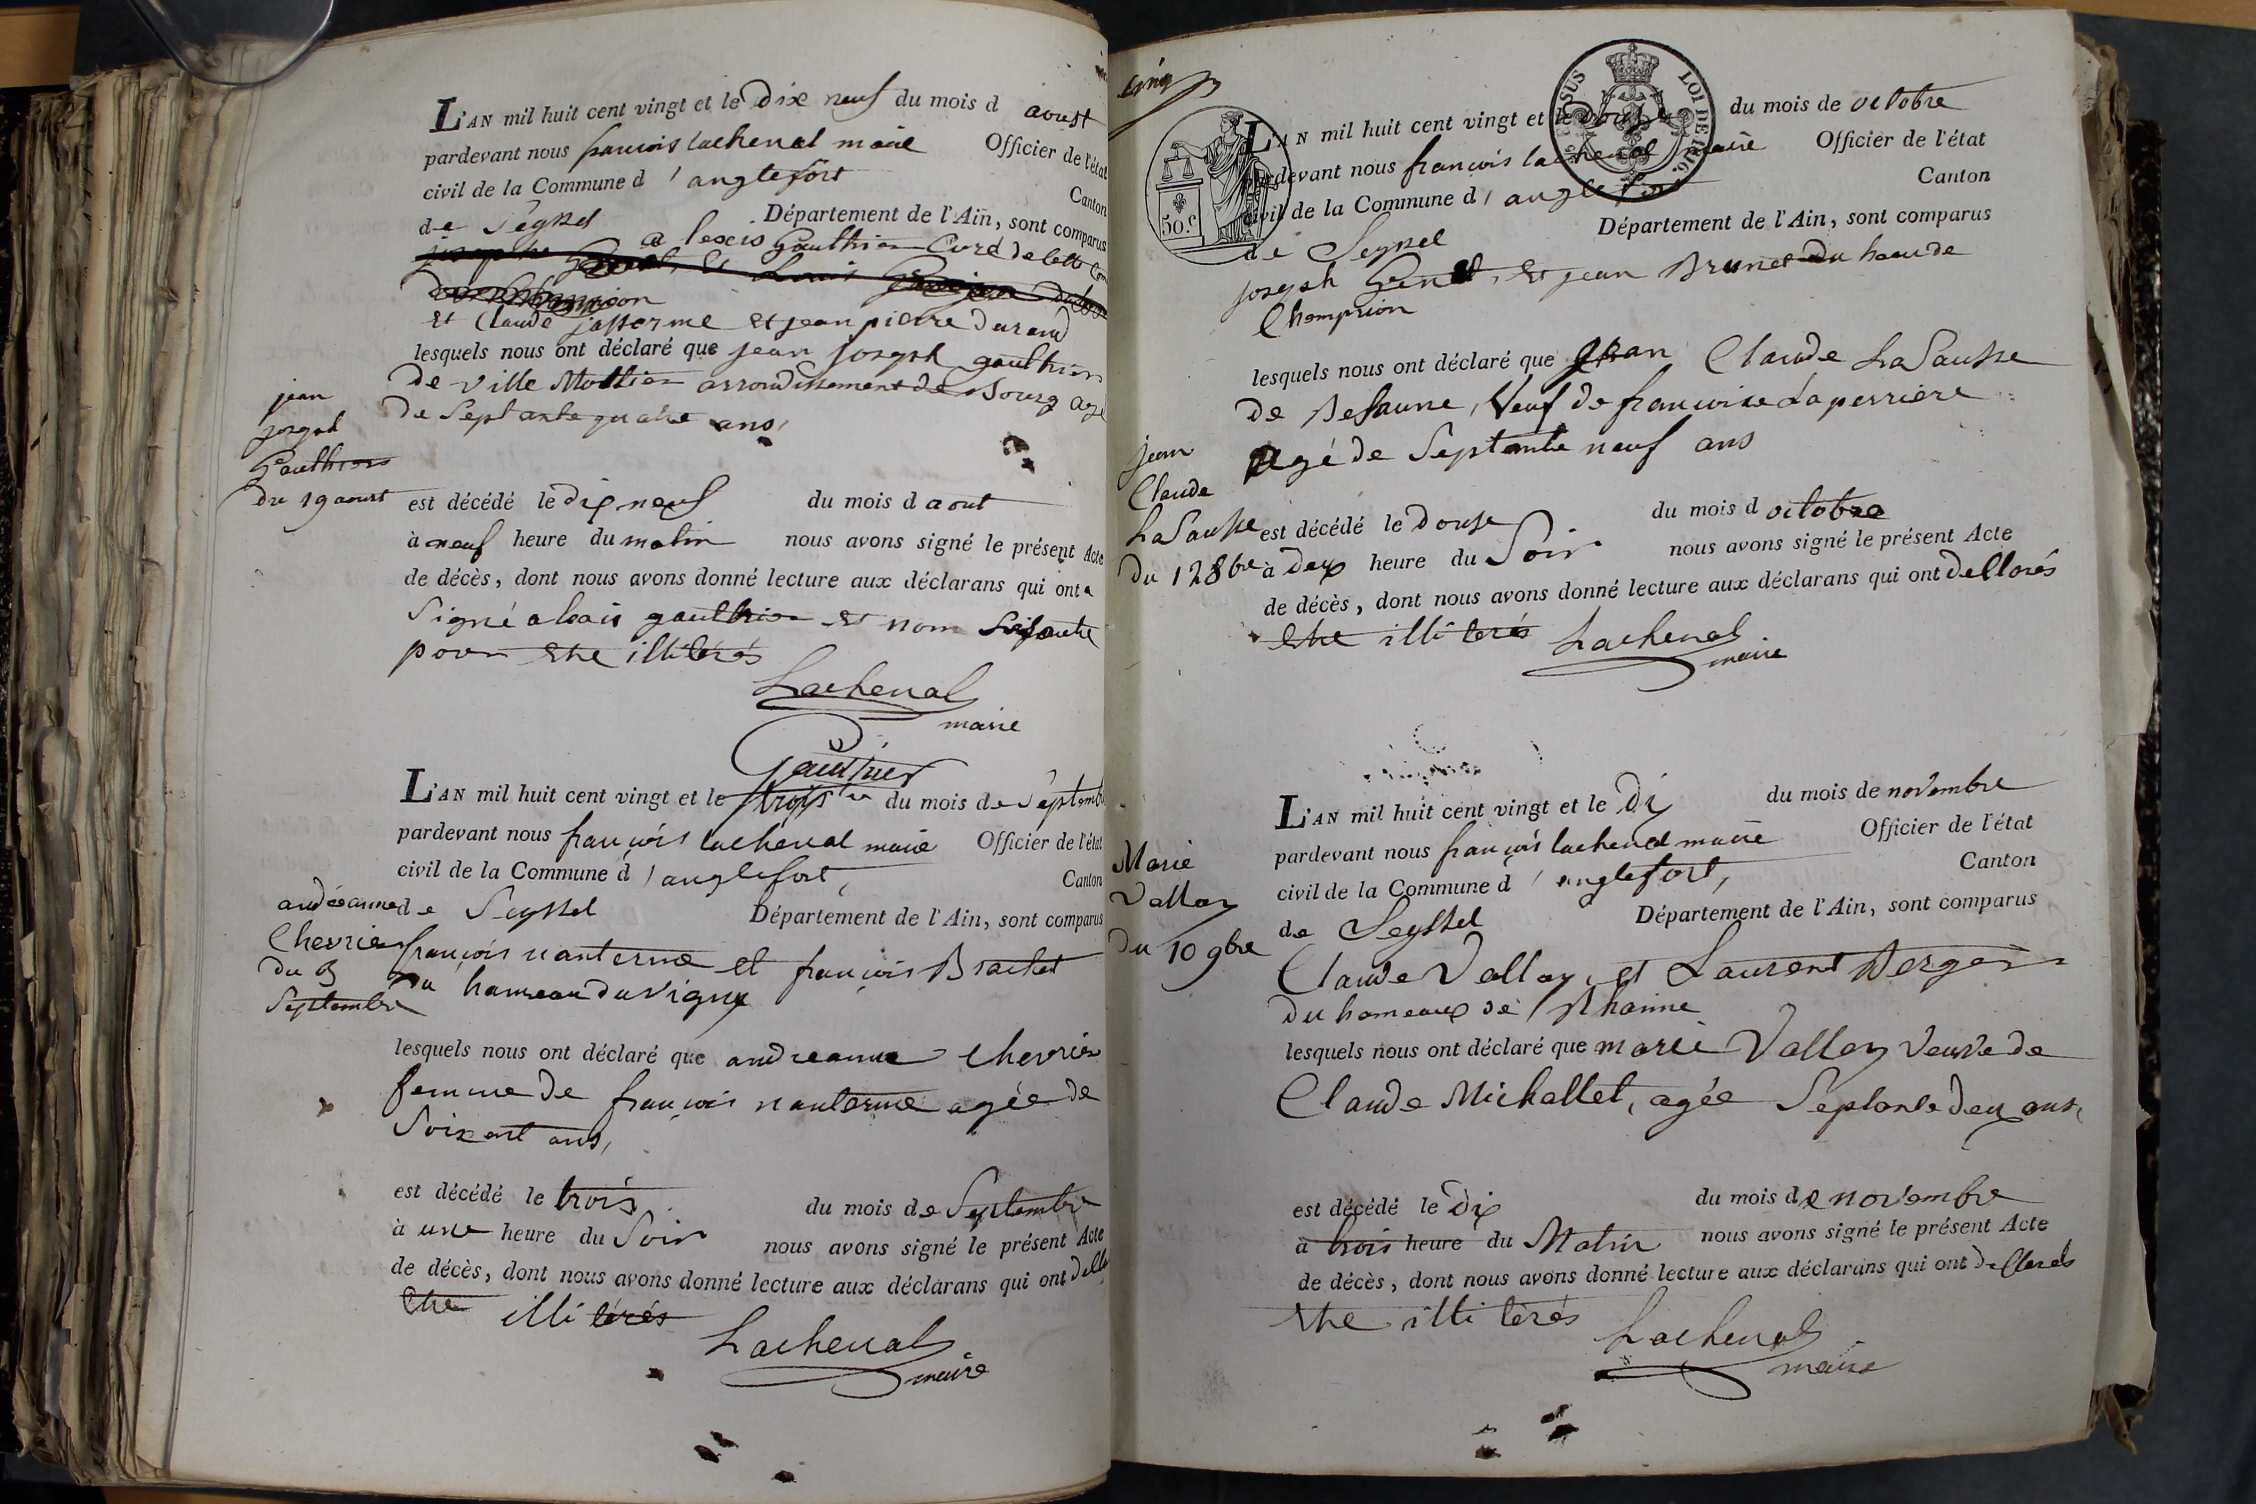 L'AN mil huit cent vingt et le dix neuf du mois d aoust
pardevant nous françois lachenal maire Officier de l'état
civil de la Commune d'anglefort Canton
de Seyssel Département de l'Ain, sont comparus
alexis Gauthier Curé de cette
et Claude jasserme et jean pierre durand
lesquels nous ont déclaré que jean joseph gauthier
de ville Mottier arrondissement de Bourg agé
de Septante quatre ans,
jean
joseph
Gauthier
du 19 aoust
est décédé le dix neuf du mois d aout
à neuf heure du matin nous avons signé le présent Acte
de décès, dont nous avons donné lecture aux déclarans qui ont
Signé alexis gauthier et nom
pour etre illitérés
Lachenal
maire
Gauthier
L'AN mil huit cent vingt et le trois du mois de Septembre
pardevant nous françois lachenal maire Officier de l'état
civil de la Commune d'anglefort, Canton
de Seyssel Département de l'Ain, sont comparus
françois nanterme et françois Brachet
du hameau du vigny
andréanne
Chevrier
du 3
Septembre
lesquels nous ont déclaré que andreanne Chevrier
femme de françois nanterme agée de
Soixant ans,
est décédé le trois du mois de Septembre
à une heure du Soir nous avons signé le présent Acte
de décès, dont nous avons donné lecture aux déclarans qui ont
etre illitérés
Lachenal
maire
cinq
SUS LOI DE 1816.
50 c
L'AN mil huit cent vingt et le douze du mois de octobre
pardevant nous françois lachenal maire Officier de l'état
civil de la Commune d'anglefort Canton
de Seyssel Département de l'Ain, sont comparus
joseph Genet, et jean Brunet du hau de
Chomprion
lesquels nous ont déclaré que jean Claude LaSausse
de Besaune, Veuf de françoise Laperriere
agé de Septante neuf ans
jean
Claude
LaSausse
du 12 8bre
est décédé le douse du mois d octobre
à deux heure du Soir nous avons signé le présent Acte
de décès, dont nous avons donné lecture aux déclarans qui ont dellorés
etre illitérés Lachenal
maire
L'AN mil huit cent vingt et le dix du mois de novembre
pardevant nous françois lachenal maire Officier de l'état
civil de la Commune d'anglefort, Canton
de Seyssel Département de l'Ain, sont comparus
Claude Vallay, et Laurent Berger
du hameaux de Rhaime
Marie
Vallay
du 10 9bre
lesquels nous ont déclaré que marie Vallay veuve de
Claude Michallet, agée Septante deux ans,
est décédé le dix du mois de novembre
à trois heure du Matin nous avons signé le présent Acte
de décès, dont nous avons donné lecture aux déclarans qui ont dellorés
etre illitérés Lachenal
maire